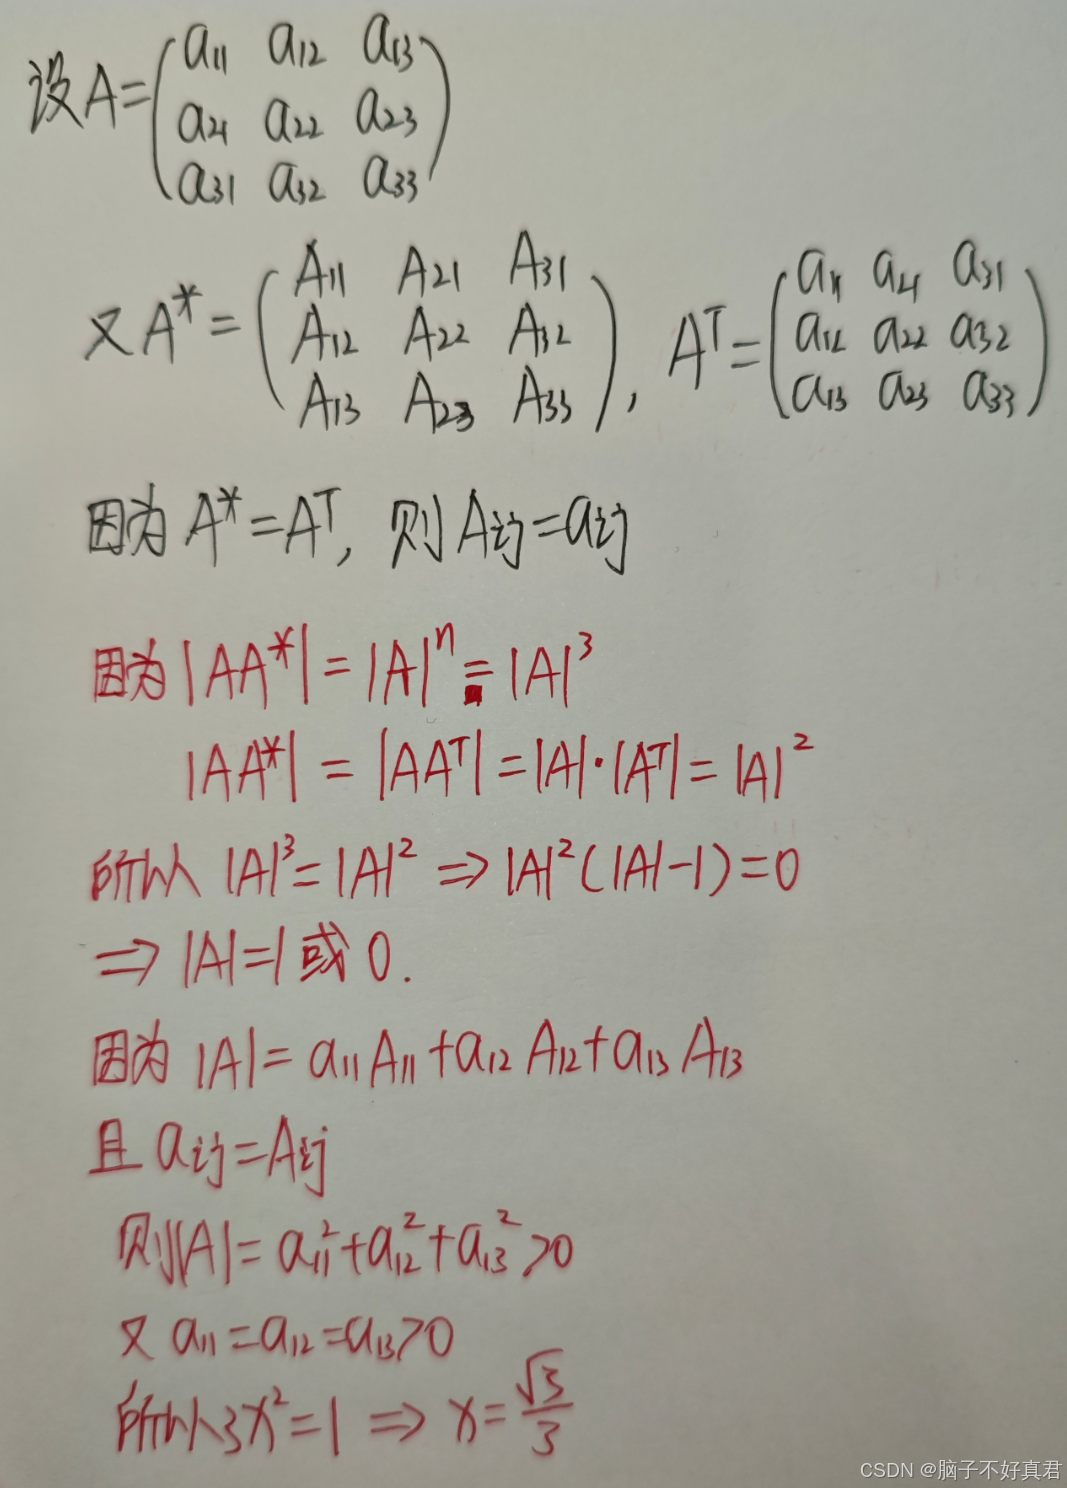 设A=(a₁₁ a₁₂ a₁₃
a₂₁ a₂₂ a₂₃
a₃₁ a₃₂ a₃₃)
又A*=(A₁₁ A₂₁ A₃₁
A₁₂ A₂₂ A₃₂
A₁₃ A₂₃ A₃₃), Aᵀ=(a₁₁ a₂₁ a₃₁
a₁₂ a₂₂ a₃₂
a₁₃ a₂₃ a₃₃)
因为 A*=Aᵀ, 则 Aij=aij
因为 |AA*|=|A|ⁿ=|A|³
|AA*|=|AAᵀ|=|A|·|Aᵀ|=|A|²
所以 |A|³=|A|² ⇒ |A|²(|A|-1)=0
⇒ |A|=1 或 0.
因为 |A|=a₁₁A₁₁+a₁₂A₁₂+a₁₃A₁₃
且 aij=Aij
则|A|=a₁₁²+a₁₂²+a₁₃²>0
又 a₁₁=a₁₂=a₁₃>0
所以3x²=1 ⇒ x=√3/3
CSDN @脑子不好真君